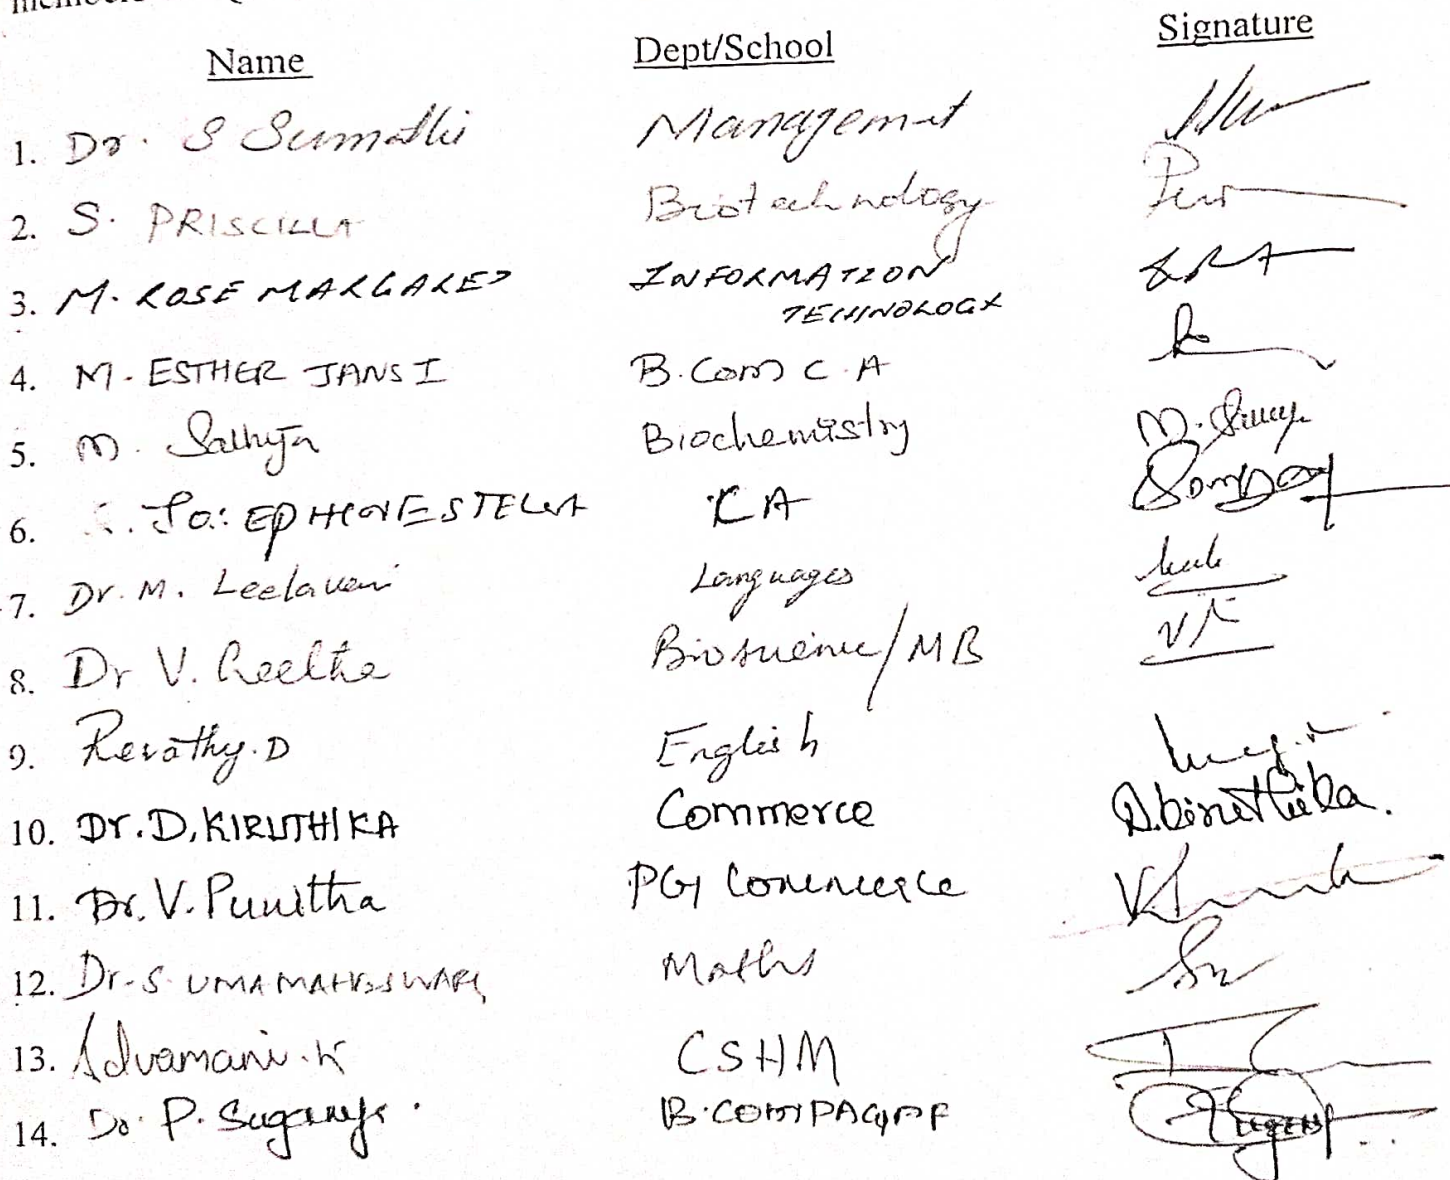 Name Dept/School Signature
1. Dr. S Sumathi Management
2. S. PRISCILLA Biotechnology
3. M. ROSE MARGARET INFORMATION
TECHNOLOGY
4. M. ESTHER JANSI B.Com C.A
5. M. Sathya Biochemistry
6. CA
7. Dr. M. Leelaveni Languages
8. Dr V. Geetha Bioscience/MB
9. Revathy.D English
10. Dr. D. KIRUTHIKA Commerce D.Kiruthika.
11. Dr. V. Punitha PG Commerce
12. Dr. S. UMAMAHESWARI Maths
13. K CSHM
14. Dr. P. Suganya.